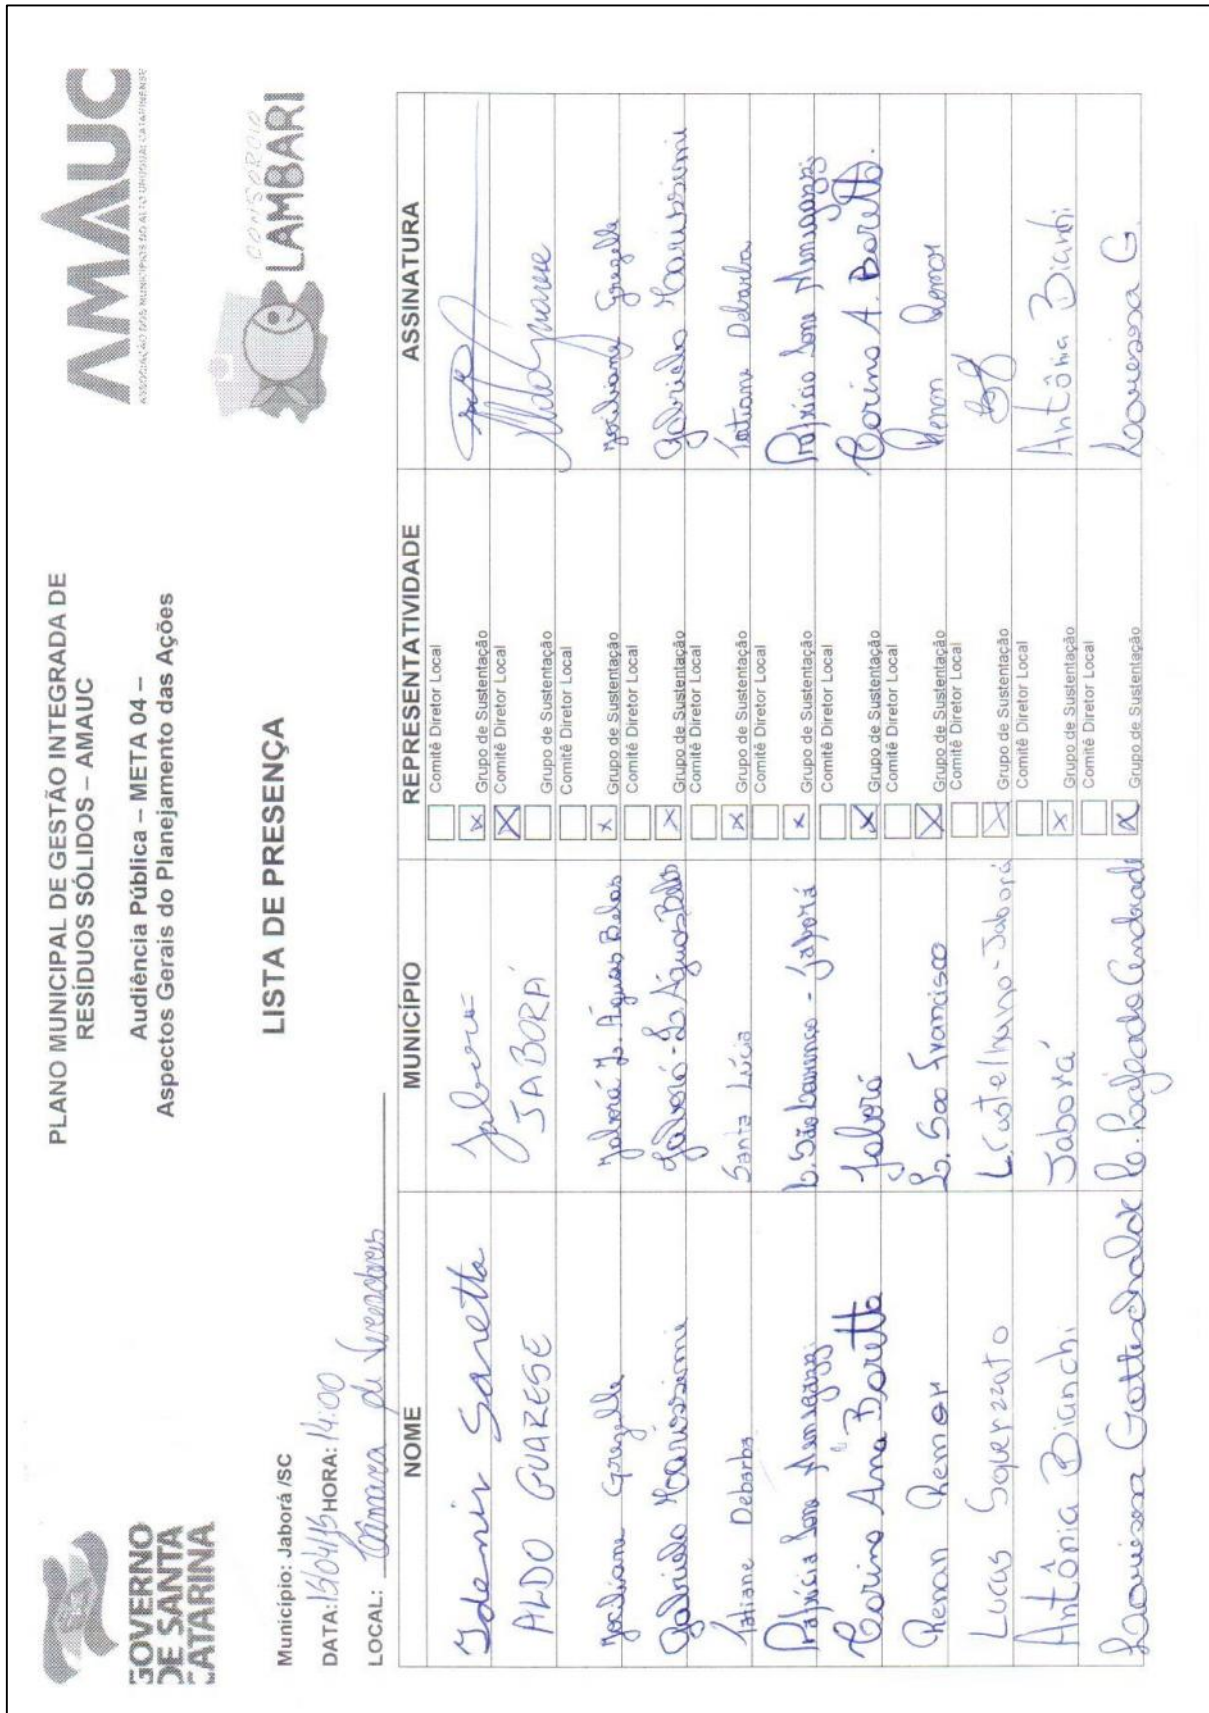 GOVERNO
DE SANTA
CATARINA
PLANO MUNICIPAL DE GESTÃO INTEGRADA DE
RESÍDUOS SÓLIDOS – AMAUC
Audiência Pública – META 04 –
Aspectos Gerais do Planejamento das Ações
AMAUC
ASSOCIAÇÃO DOS MUNICÍPIOS DO ALTO URUGUAI CATARINENSE
CONSÓRCIO
LAMBARI
LISTA DE PRESENÇA
Município: Jaborá /SC
DATA: 15/04/15 HORA: 14:00
LOCAL: Câmara de Vereadores
NOME MUNICÍPIO REPRESENTATIVIDADE ASSINATURA
Idenir Saretta Jaborá
Comitê Diretor Local
x Grupo de Sustentação
ALDO GUARESE JABORÁ
X Comitê Diretor Local
Grupo de Sustentação
Aldo Guarese
Grezelle Jaborá L. Águas Belas
Comitê Diretor Local
x Grupo de Sustentação
Grezelle
Gabriela Jaborá - L. Águas Belas
Comitê Diretor Local
x Grupo de Sustentação
Gabriela
Tatiane Debarba Santa Lúcia
Comitê Diretor Local
x Grupo de Sustentação
Tatiane Debarba
L. São Lourenço - Jaborá
Comitê Diretor Local
x Grupo de Sustentação
Corina Ana Boretto Jaborá
Comitê Diretor Local
x Grupo de Sustentação
Corina A. Boretto.
Renan Remor L. São Francisco
Comitê Diretor Local
X Grupo de Sustentação
Renan Remor
Lucas Soquerzzato L. Castelhano - Jaborá
Comitê Diretor Local
X Grupo de Sustentação
Antônia Bianchi Jaborá
Comitê Diretor Local
x Grupo de Sustentação
Antônia Bianchi
Gottschalck Andrade
Comitê Diretor Local
x Grupo de Sustentação
G.